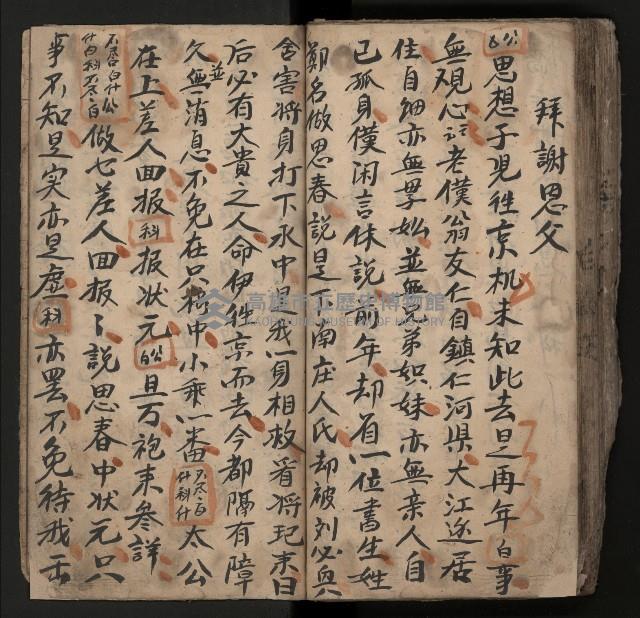 拜謝恩父
公白思想子児徃京机未知此去是再年白事
無現心記老僕翁友仁自鎮仁河県大江近居
住自細亦無妻㚢並無兄弟姐妹亦無亲人自
已孤身僕闲言休説前年却有一位書生姓
鄭名做思春説是西南庄人氏却被刘必與
舍害將身打下水中是我一身相救看將玘末日
后必有大貴之人命伊徃京而去今都隔有障
久並無消息不免在只树中小乘一番不尽白什科什太公
在上差人面报科报状元白公旦万袍来参詳
不尽白什公什白科不尽白做乜差人面报〻説思春中状元只
事不知是实亦是虚科亦罢不免待我去
高雄市立歷史博物館
KAOHSIUNG MUSEUM OF HISTORY